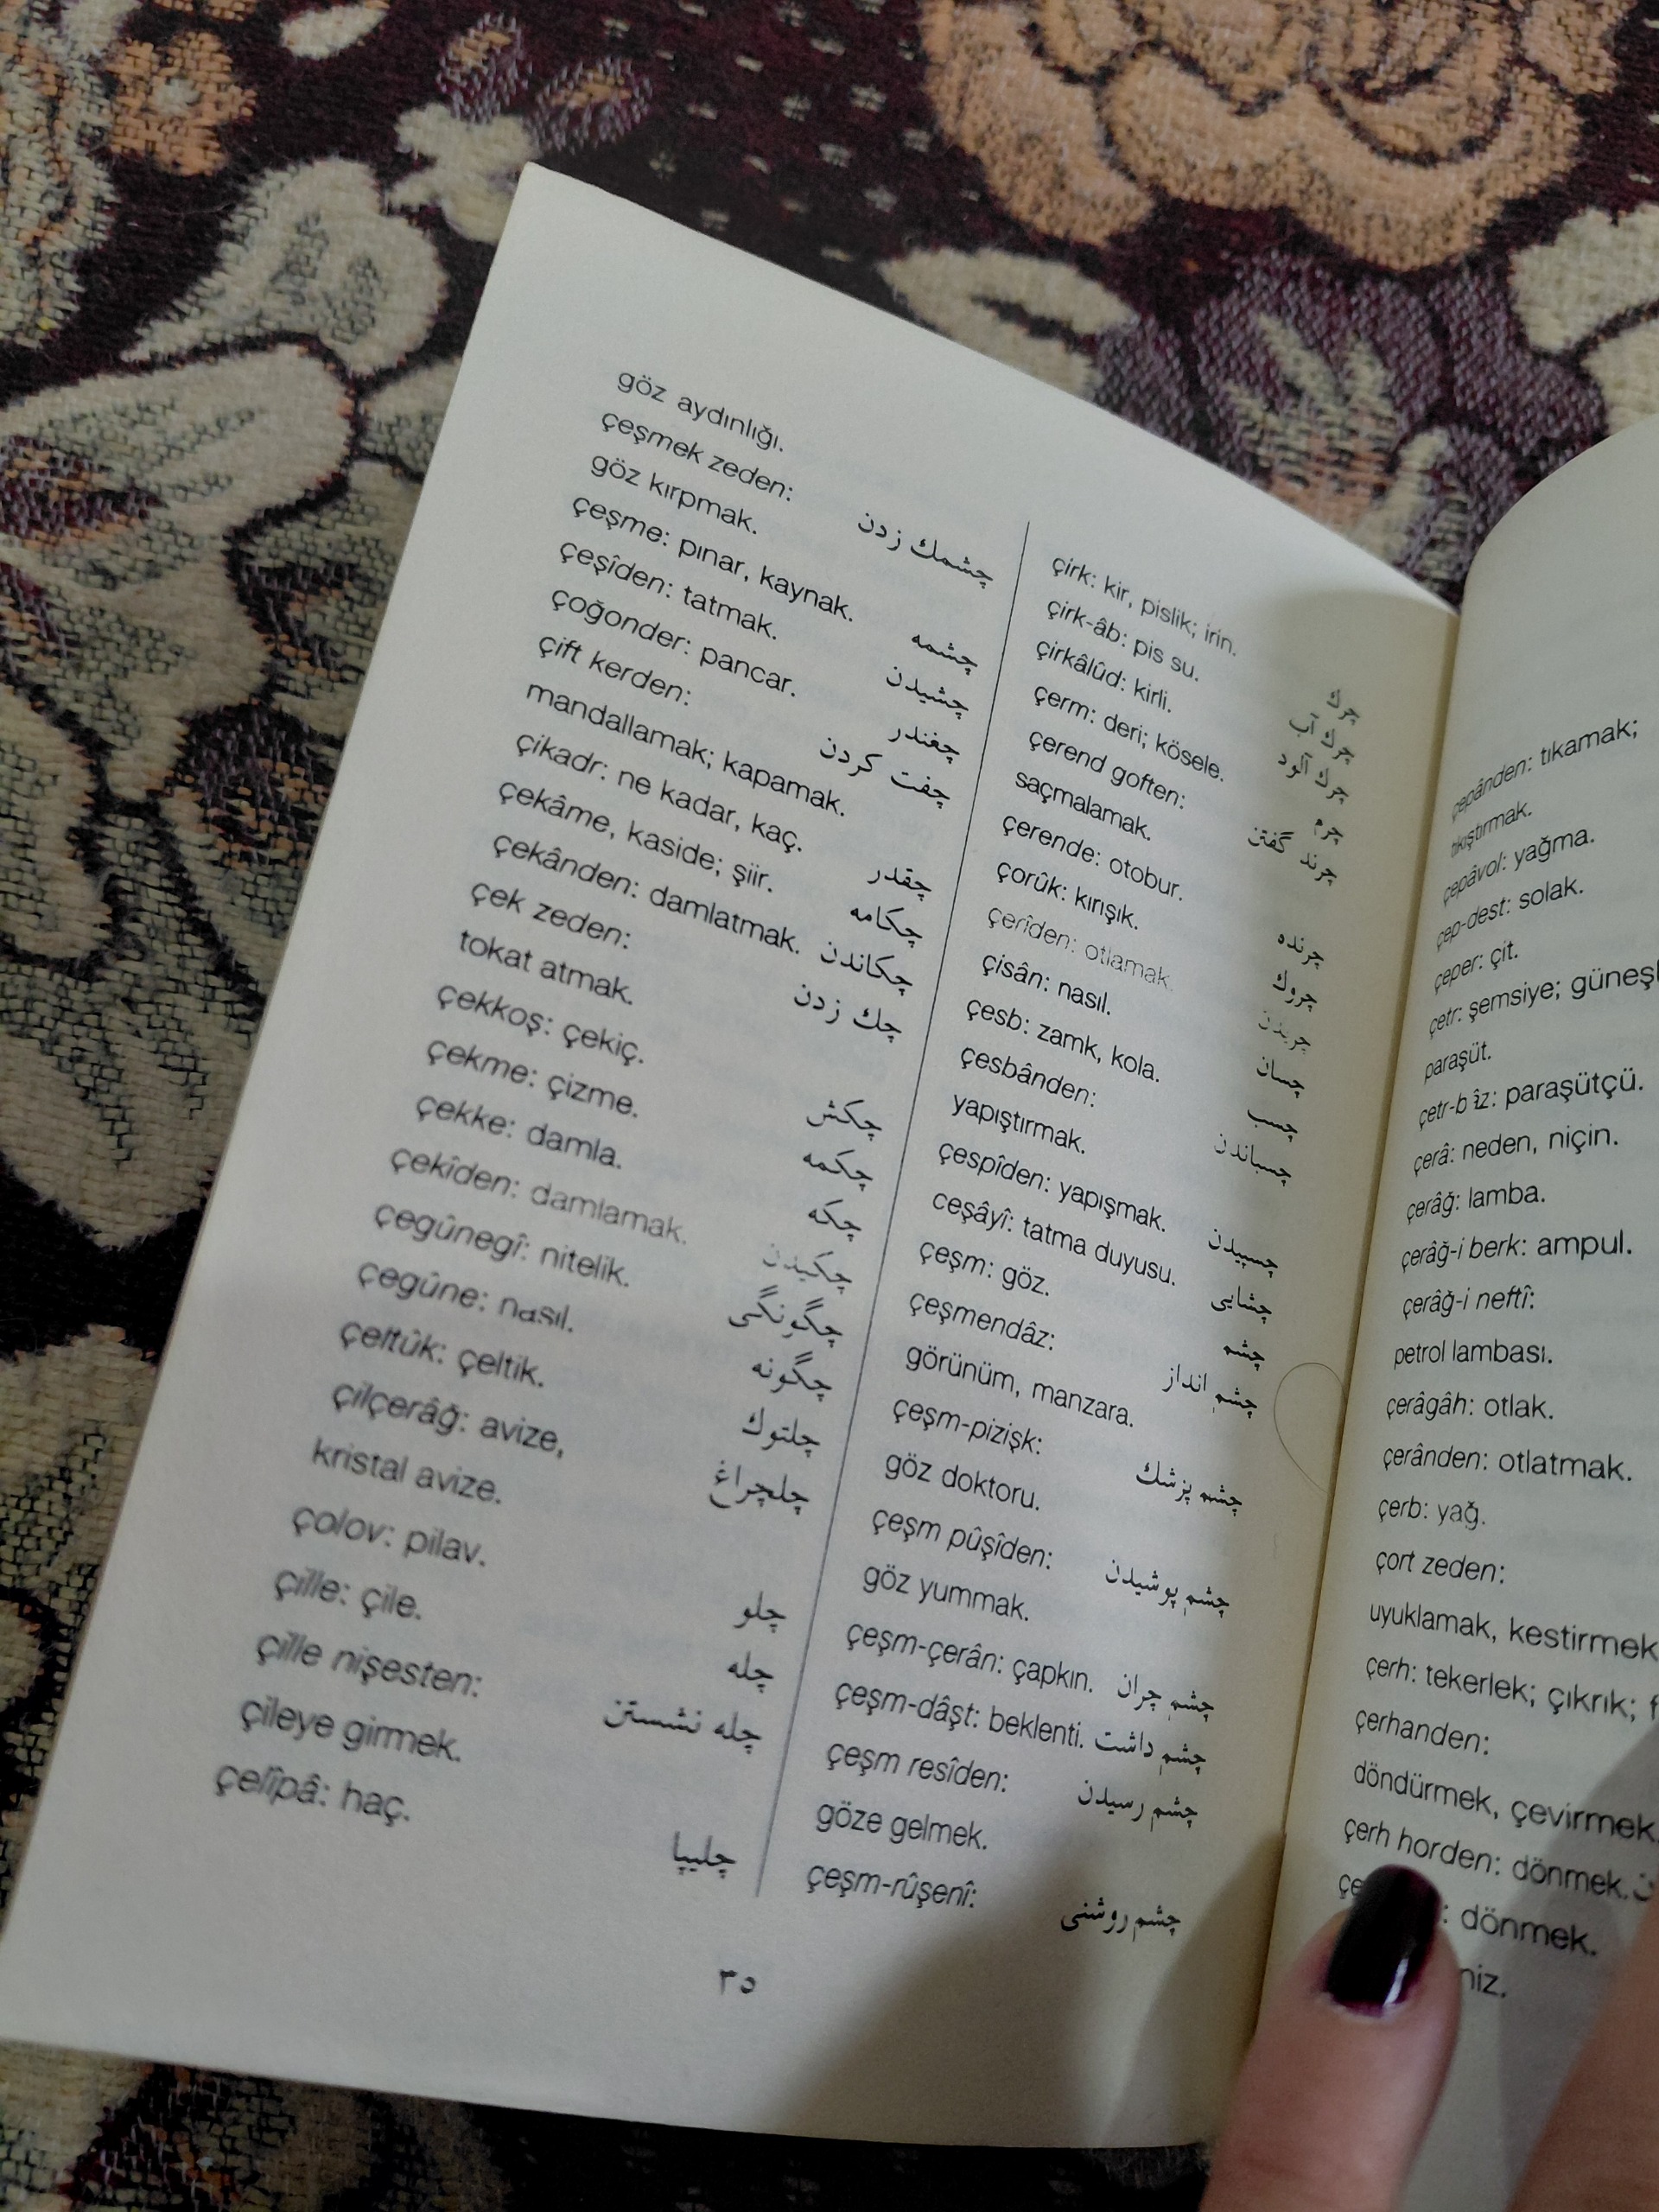 çepânden: tıkamak;
tıkıştırmak.
çepâvol: yağma.
çep-dest: solak.
çeper: çit.
çetr: şemsiye;
paraşüt.
çetr-bîz: paraşütçü.
çerâ: neden, niçin.
çerâğ: lamba.
çerâğ-i berk: ampul.
çerâğ-i neftî:
petrol lambası.
çerâgâh: otlak.
çerânden: otlatmak.
çerb: yağ.
çort zeden:
uyuklamak, kestirmek
çerh: tekerlek; çıkrık;
çerhanden:
döndürmek, çevirmek.
çerh horden: dönmek.
: dönmek.
çirk: kir, pislik; irin. چرك
çirk-âb: pis su. چرك آب
çirkâlûd: kirli. چرك آلود
çerm: deri; kösele. چرم
çerend goften: چرند گفتن
saçmalamak.
çerende: otobur. چرنده
çorûk: kırışık. چروك
çerîden: otlamak. چریدن
çisân: nasıl. چسان
çesb: zamk, kola. چسب
çesbânden: چسباندن
yapıştırmak.
çespîden: yapışmak. چسپیدن
ceşâyî: tatma duyusu. چشایی
çeşm: göz. چشم
çeşmendâz: چشم انداز
görünüm, manzara.
çeşm-pizişk: چشم پزشك
göz doktoru.
çeşm pûşîden: چشم پوشیدن
göz yummak.
çeşm-çerân: çapkın. چشم چران
çeşm-dâşt: beklenti. چشم داشت
çeşm resîden: چشم رسیدن
göze gelmek.
çeşm-rûşenî: چشم روشنی
göz aydınlığı.
çeşmek zeden: چشمك زدن
göz kırpmak.
çeşme: pınar, kaynak. چشمه
çeşîden: tatmak. چشیدن
çoğonder: pancar. چغندر
çift kerden: چفت کردن
mandallamak; kapamak.
çikadr: ne kadar, kaç. چقدر
çekâme, kaside; şiir. چکامه
çekânden: damlatmak. چکاندن
çek zeden: چك زدن
tokat atmak.
çekkoş: çekiç. چکش
çekme: çizme. چکمه
çekke: damla. چکه
çekîden: damlamak. چکیدن
çegûnegî: nitelik. چگونگی
çegûne: nasıl. چگونه
çeltûk: çeltik. چلتوك
çilçerâğ: avize, چلچراغ
kristal avize.
çolov: pilav. چلو
çille: çile. چله
çille nişesten: چله نشستن
çileye girmek.
çelîpâ: haç. چلیپا
٣٥